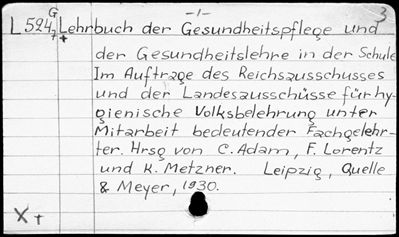 -1-
3
G
L 524, Lehrbuch der Gesundheitspflege und
+ +
der Gesundheitslehre in der Schule
Im Auftrage des Reichsausschusses
und der Landesausschüsse für hy-
gienische Volksbelehrung unter
Mitarbeit bedeutender Fachgelehr-
ter. Hrsg von C. Adam, F. Lorentz
und K. Metzner. Leipzig, Quelle
& Meyer, 1930.
X +